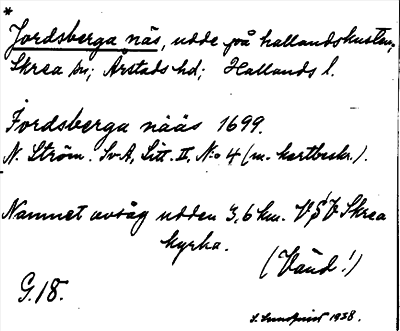 *
Jordsberga näs, udde på hallandskusten;
Skrea sn; Årstads hd; Hallands l.
Jordsberga nääs 1699.
N. Ström. SvA, Litt. II, No 4 (m. kartbeskr.).
Namnet avsåg udden 3,6 km. V Skrea
kyrka.
(Vänd!)
G.18.
S. Lundqvist 1938.